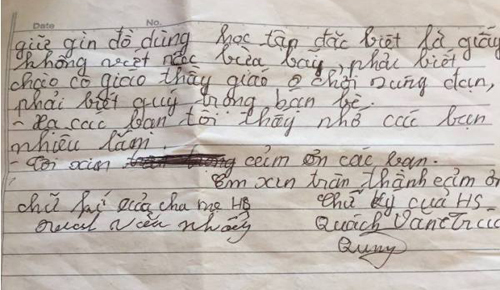 Date No.
giữ gìn đồ dùng học tập đặc biệt là giấy
không viết bừa bãy, phải biết
chào cô giáo thầy giáo chơi súng đạn,
phải biết quý trong bạn bè.
- Xa các bạn tôi thấy nhớ các bạn
nhiều lắm.
- Tôi xin cẻm ơn các bạn.
Em xin trân thành cẻm ơ
chữ kí của cha mẹ HS Chữ ký của HS
Quách Văn